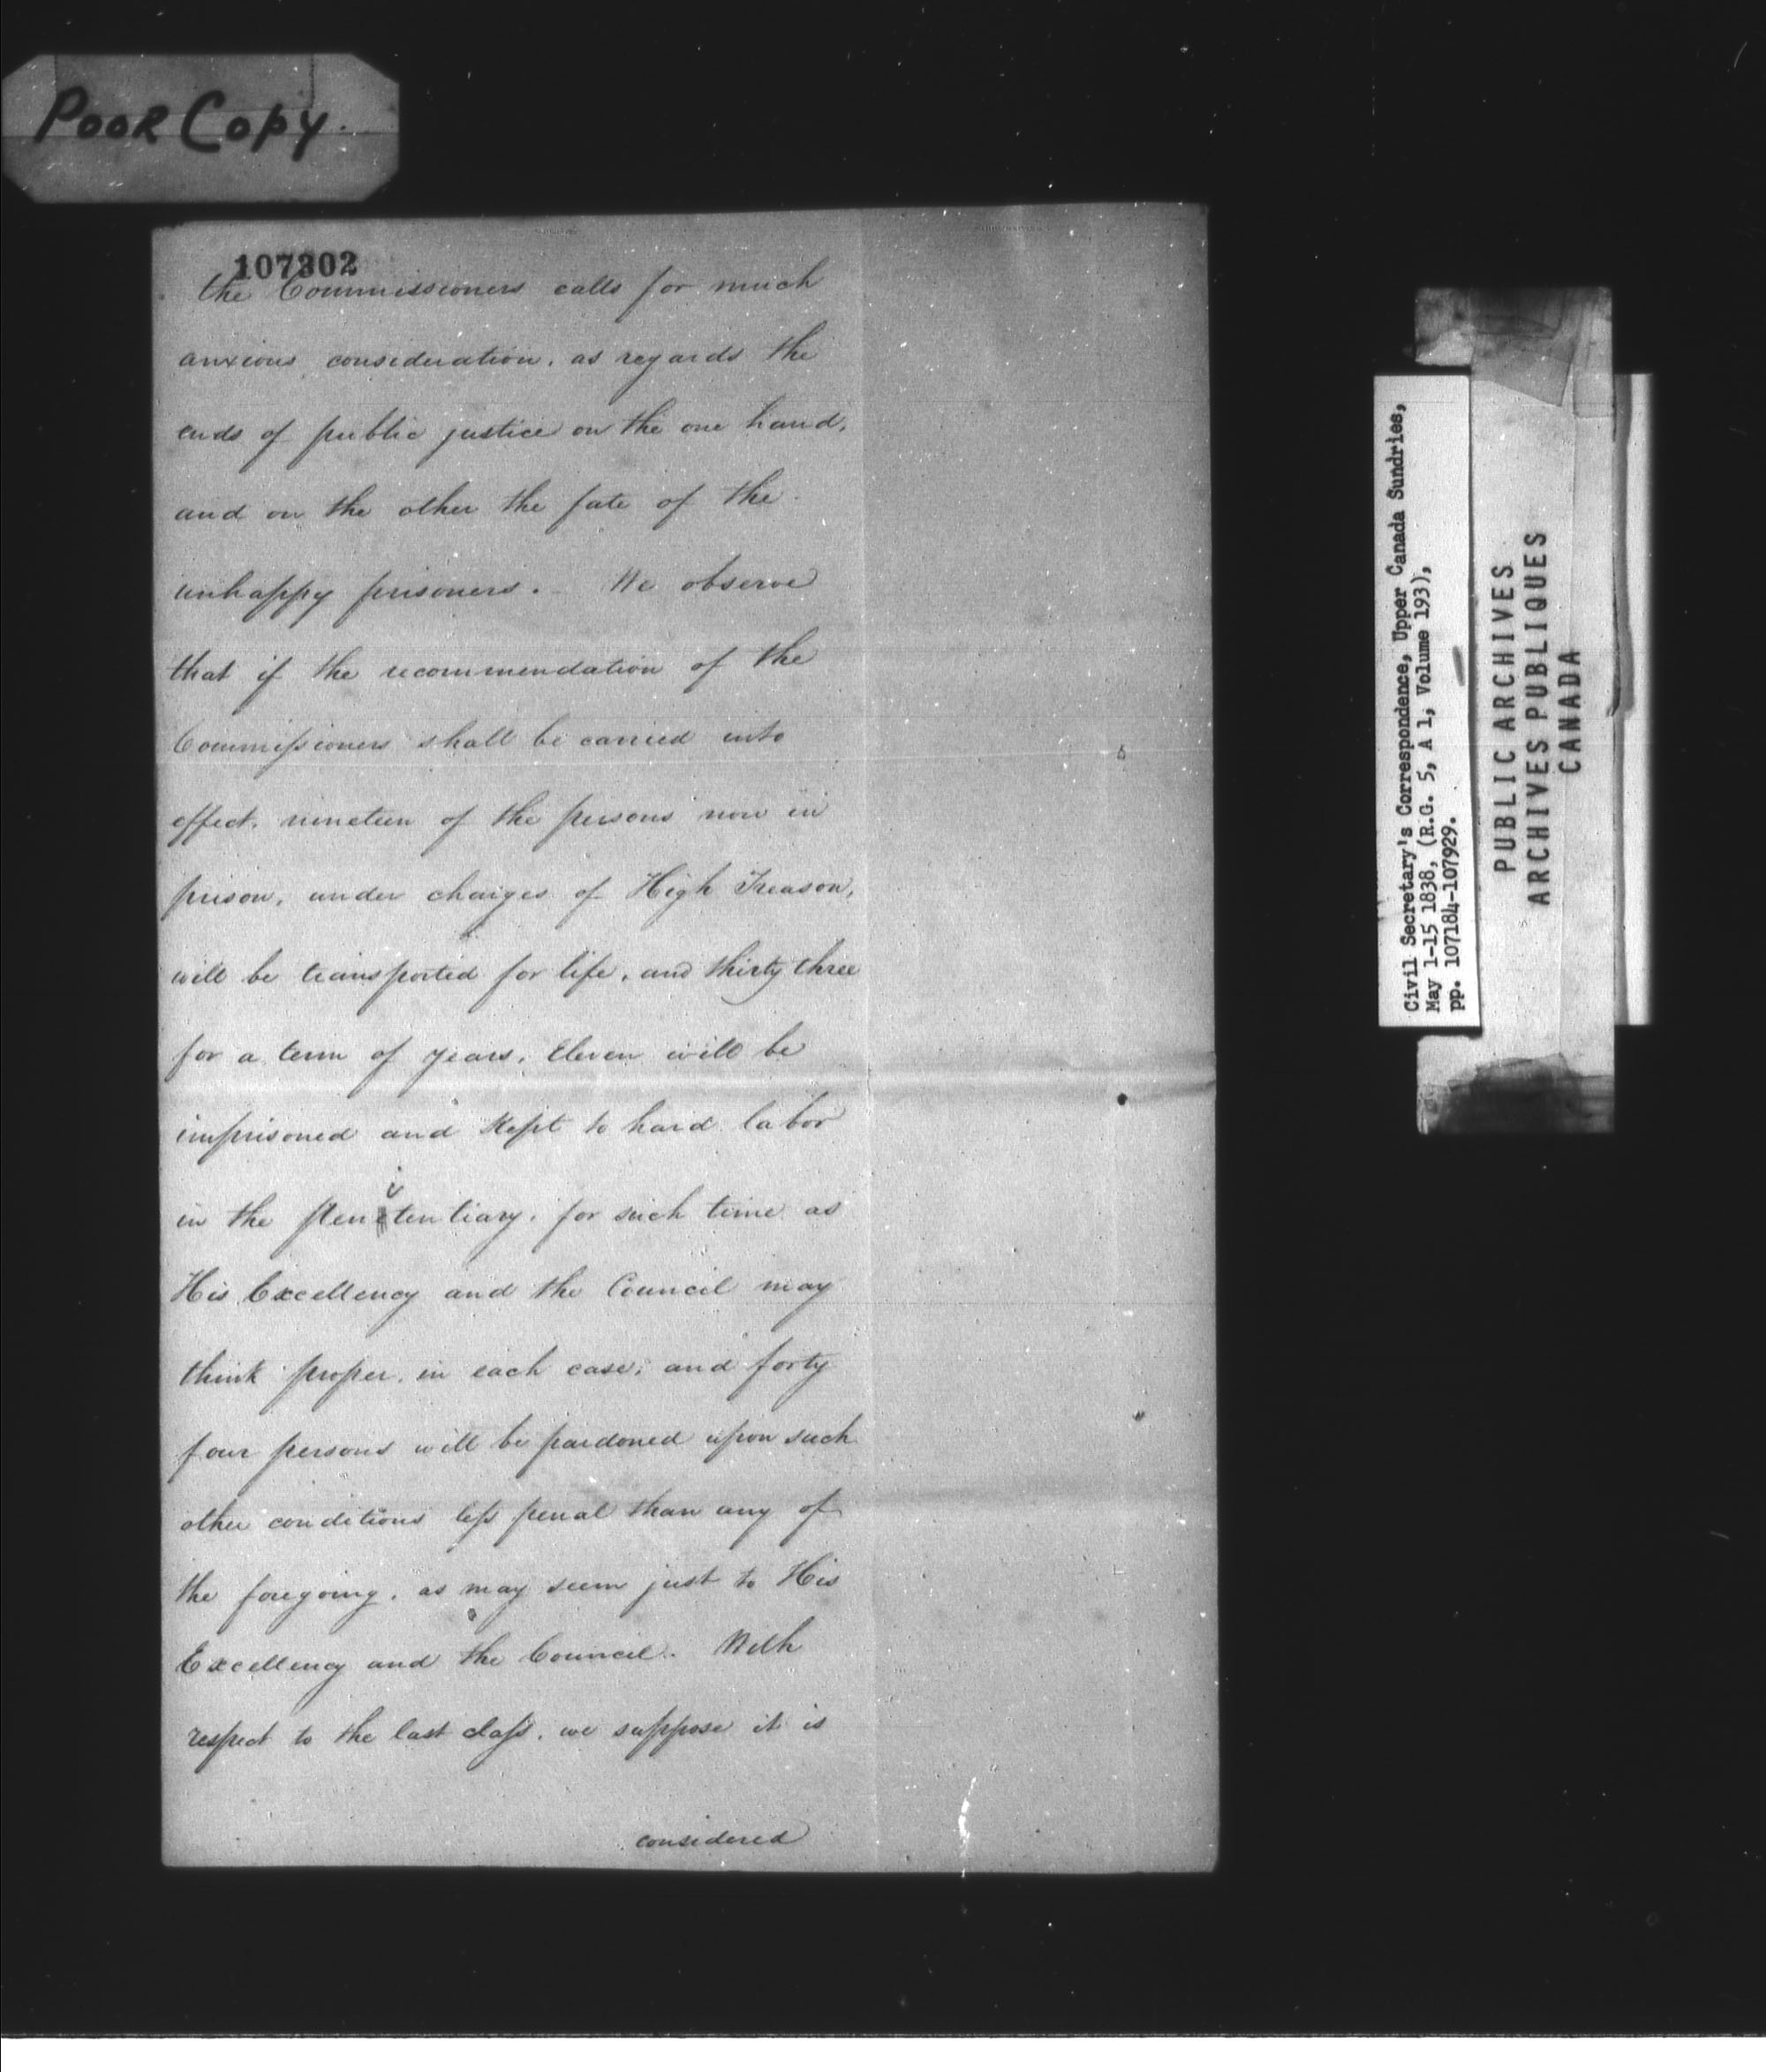 Poor Copy.
107302
the Commissioners calls for much
anxious consideration, as regards the
ends of public justice on the one hand,
and on the other the fate of the
unhappy prisoners. We observe
that if the recommendation of the
Commiſsioners shall be carried into
effect, nineteen of the persons now in
prison, under charges of High Treason,
will be transported for life, and thirty three
for a term of years. Eleven will be
imprisoned and kept to hard labor
in the penitentiary, for such time as
His Excellency and the Council may
think proper, in each case; and forty
four persons will be pardoned upon such
other conditions leſs penal than any of
the foregoing, as may seem just to His
Excellency and the Council. With
respect to the last claſs, we suppose it is
considered
Civil Secretary's Correspondence, Upper Canada Sundries,
May 1-15 1838, (R.G. 5, A 1, Volume 193),
pp. 107184-107929.
PUBLIC ARCHIVES
ARCHIVES PUBLIQUES
CANADA